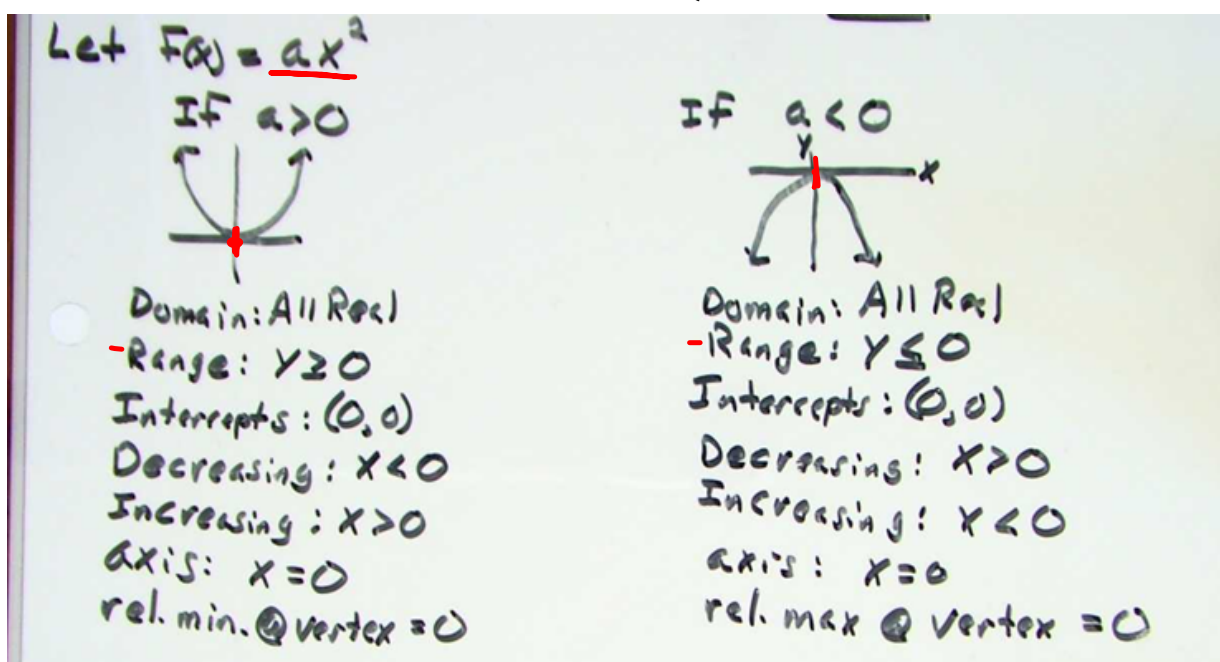 Let F(x) = ax²
If a>0
Domain: All Real
Range: Y≥0
Intercepts: (0,0)
Decreasing: X<0
Increasing: X>0
axis: X=0
rel. min. @ vertex = 0
If a<0
Y
X
Domain: All Real
Range: Y≤0
Intercepts: (0,0)
Decreasing: X>0
Increasing: X<0
axis: X=0
rel. max @ vertex = 0